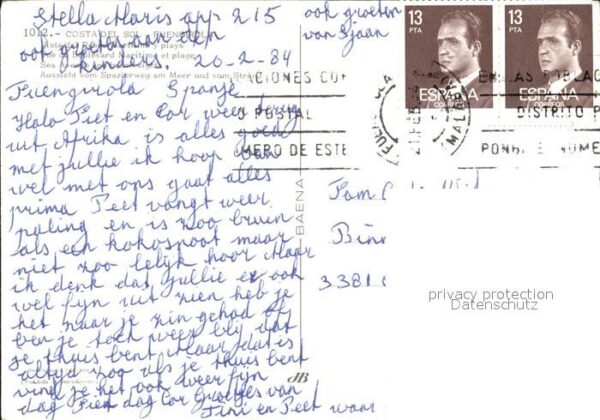 Stella Maris app 215
ook groeten
van Sjaan
ook groeten aan den
kinders. 20-2-84
1012.- COSTA DEL SOL. FUENGIROLA
Vista del paseo marítimo y playa
Vue du Boulevard Maritime et plage
Aussicht vom Spazierweg am Meer und vom Strand
Fuengirola Spanje
Halo Piet en Cor weer terug
uit Afrika is alles goed
met jullie ik hoop van
wel met ons gaat alles
prima Peet vangt weer
paling en is zoo bruin
als een kokosnoot maar
niet zoo lelijk hoor Maar
ik denk dat jullie er ook
wel fijn uit zien heb je
het naar je zin gehad of
ben je toch weer blij dat
je thuis bent Maar dat is
altyd zoo als je thuis bent
vind je het ook weer fijn
dag Piet dag Cor Groetjes van
Tini en Peet
13
PTA
ESPAÑA
CORREOS
13
PTA
ESPAÑA
CORREOS
CIONES CON
O POSTAL
MERO DE ESTE
DISTRITO P
PONGA E NUME
BAENA
Fam
3381
privacy protection
Datenschutz
JB